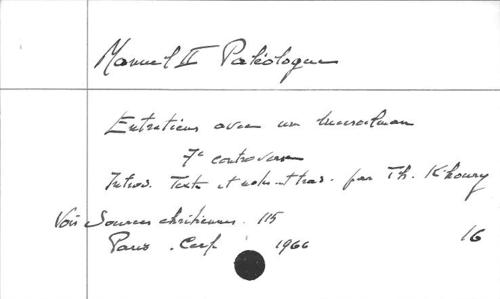 Manuel II Paléologue
Entretiens avec un musulman
7e controverse
Introd. Texte et notes et trad. par Th. Khoury
Voir Sources chrétiennes. 115
Paris. Cerf. 1966
16